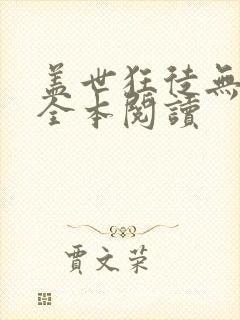 盖世狂徒無
全本閱讀
賈文荣